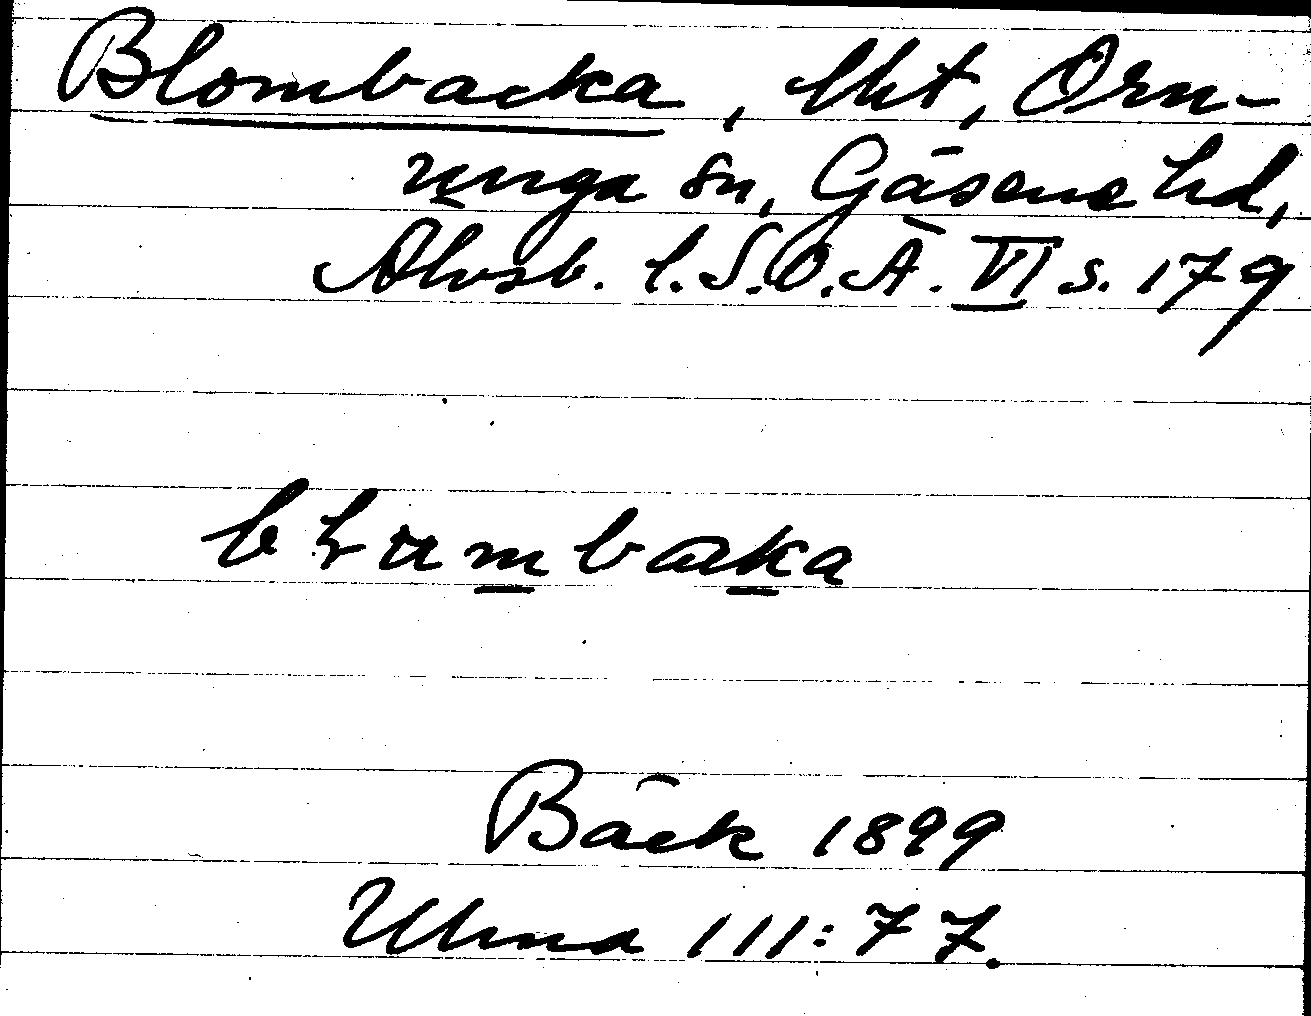 Blombacka, lht, Orn-
unga sn, Gäsene hd,
Älvsb. l. S.O.Ä. VI s. 179
bɫumbacka
Bäck 1899
Ulma 111:77.